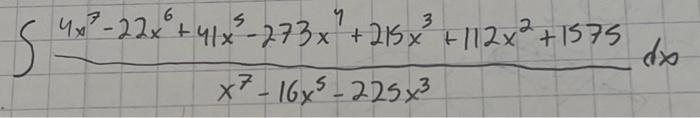 ∫ (4x^7 - 22x^6 + 41x^5 - 273x^4 + 215x^3 + 112x^2 + 1575) / (x^7 - 16x^5 - 225x^3) dx